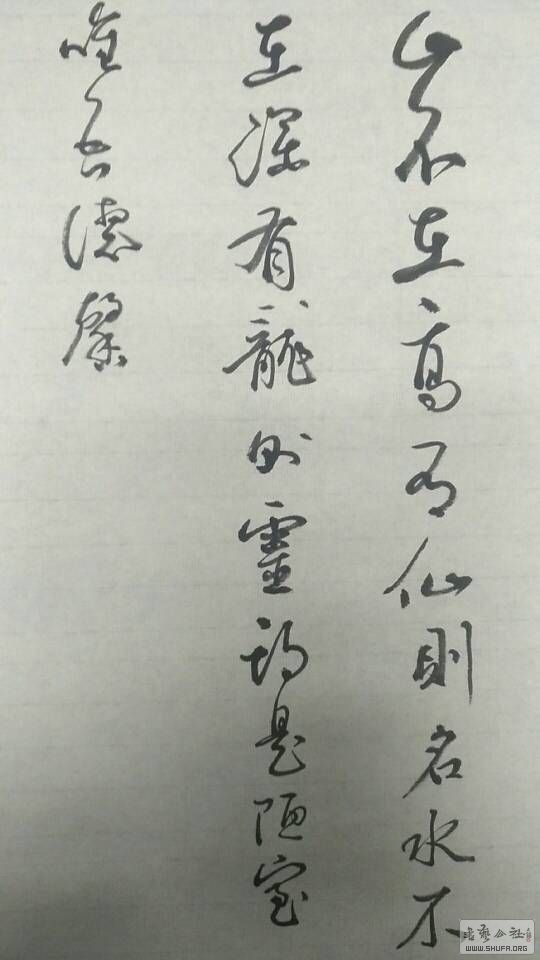 山不在高有仙則名水不
在深有龍則靈斯是陋室
唯吾德馨
WWW.SHUFA.ORG